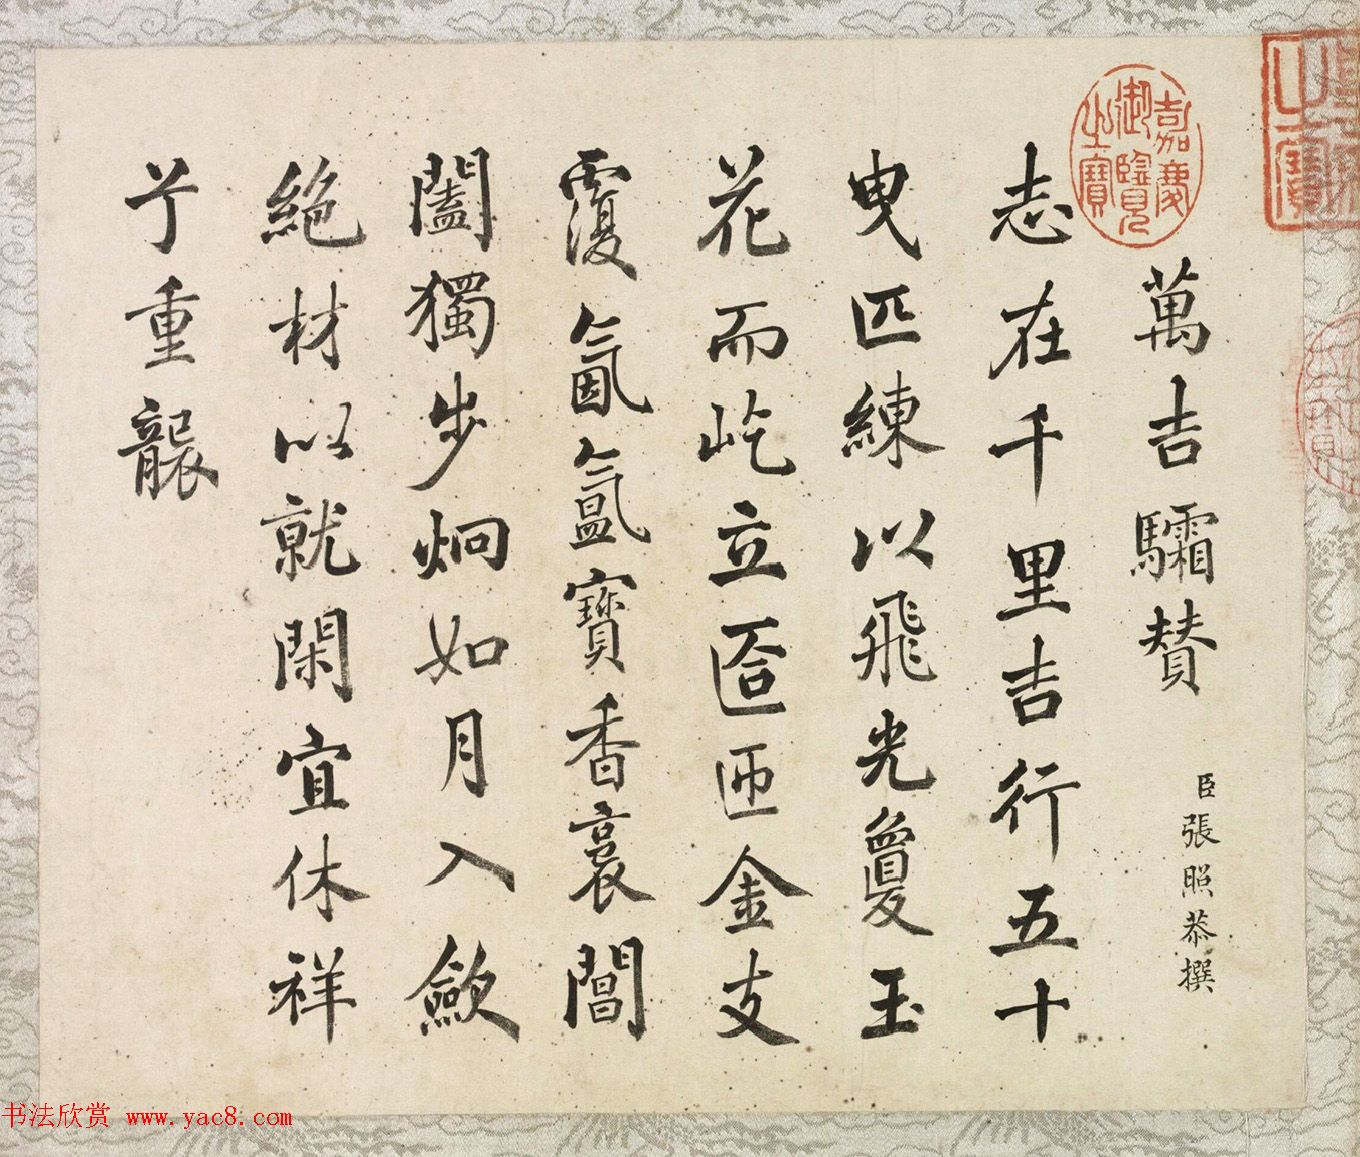 嘉慶
御覽
之寶
萬吉驦賛
臣張照恭撰
志在千里吉行五十
曳匹練以飛光敻玉
花而屹立匼匝金支
覆氤氳寶香裛閶
闔獨步炯如月入歛
絕材以就閑宜休祥
兮重襲
书法欣赏 www.yac8.com